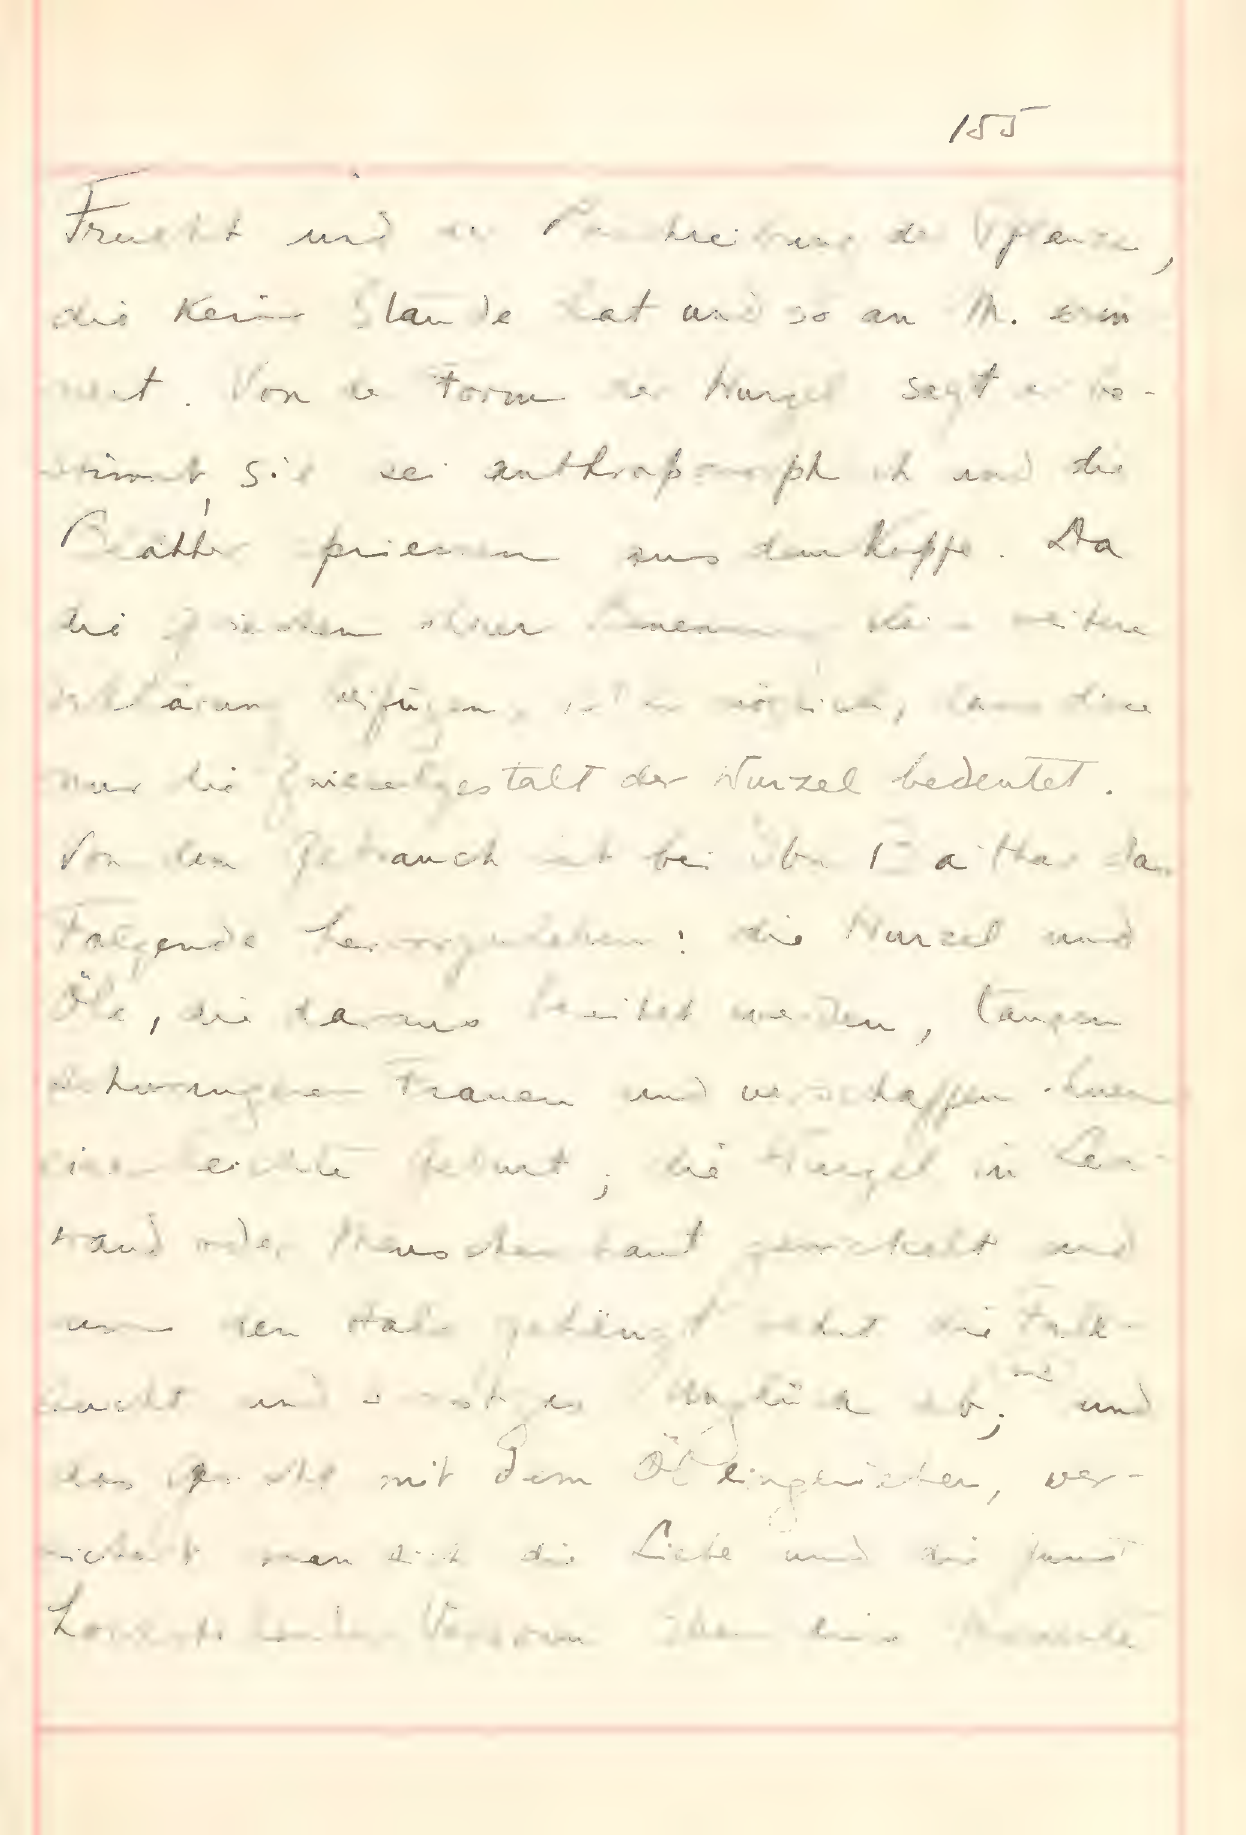 155
Frucht und der Beschreibung der Pflanze,
die keine Staude hat und so an M. erin
nert. Von der Form der Wurzel sagt er be-
stimmt, sie sei anthropomorphisch und die
Blätter spriessen aus dem Kopfe. Da
die Griechen ihrer Benennung keine weitere
Erklärung beifügen, ist es möglich, dass diese
nur die Zwieselgestalt der Wurzel bedeutet.
Von dem Gebrauch ist bei Ibn Baithar das
Folgende hervorzuheben: die Wurzel und
Öle, die daraus bereitet werden, taugen
schwangeren Frauen und verschaffen ihnen
eine leichte Geburt; die Wurzel in Lein-
wand oder Menschenhaut gewickelt und
um den Hals gehängt wehrt die Fall-
sucht und sonstiges Unglück ab; und
das Gesicht mit dem Öl eingerieben, ver-
sichert man sich die Liebe und die Gunst
hochstehender Personen